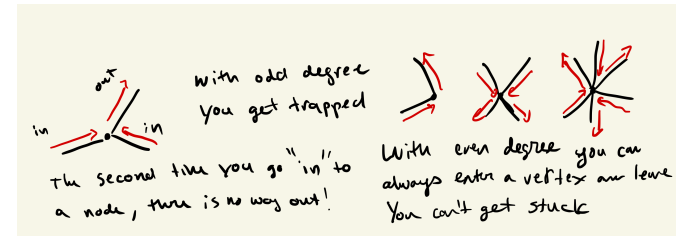 out
in
in
with odd degree
you get trapped
The second time you go "in" to
a node, there is no way out!
With even degree you can
always enter a vertex and leave
You can't get stuck